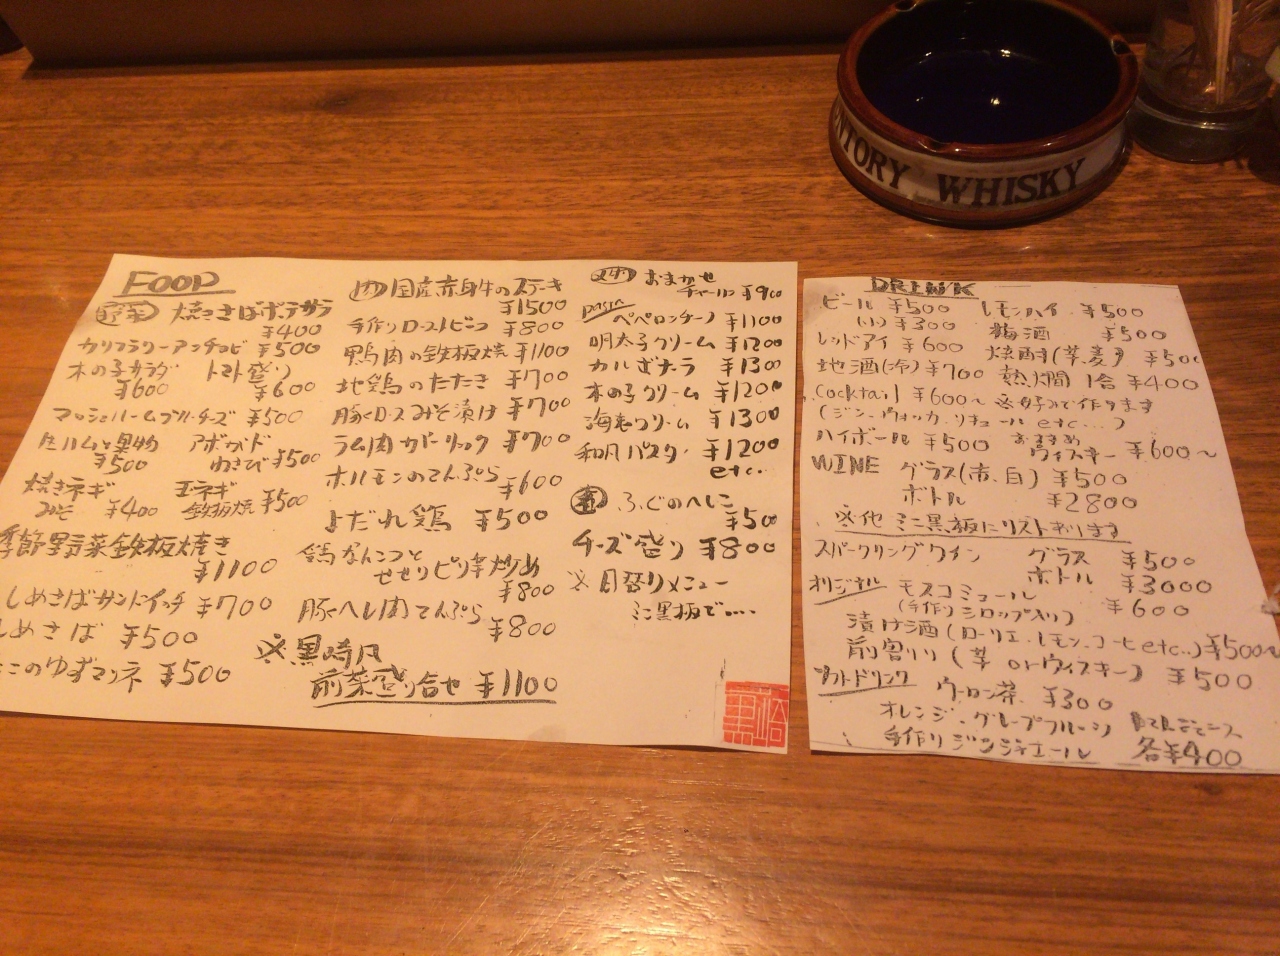 FOOD
野菜 焼きさばポテサラ
¥400
カリフラワーアンチョビ ¥500
木の子サラダ ¥600
トマト盛り ¥600
マッシュルームブルーチーズ ¥500
生ハムと果物 ¥500
アボガドわさび ¥500
焼きネギみそ ¥400
玉ネギ鉄板焼 ¥500
季節野菜鉄板焼き
¥1100
しめさばサンドイッチ ¥700
しめさば ¥500
たこのゆずマリネ ¥500
肉 国産赤身牛のステーキ
¥1500
手作りローストビーフ ¥800
鴨肉の鉄板焼 ¥1100
地鶏のたたき ¥700
豚ロースみそ漬け ¥700
ラム肉ガーリック ¥700
ホルモンのてんぷら
¥600
よだれ鶏 ¥500
鶏なんこつと
せせりピリ辛炒め
¥800
豚ヘレ肉てんぷら
¥800
※黒時風
前菜盛り合せ ¥1100
おまかせ
チャーハン ¥900
pasta
ペペロンチーノ ¥1100
明太子クリーム ¥1200
カルボナーラ ¥1300
木の子クリーム ¥1200
海老クリーム ¥1300
和風パスタ ¥1200
etc...
ふぐのへしこ
¥500
チーズ盛り ¥800
※日替りメニュー
ミニ黒板で....
DRINK
ビール ¥500
(小) ¥300
レモンハイ ¥500
梅酒 ¥500
レッドアイ ¥600
焼酎(芋、麦) ¥500
地酒(冷) ¥700
熱燗 1合 ¥400
Cocktail ¥600〜 ※お好みで作ります
(ジン、ウォッカ、リキュール etc...)
ハイボール ¥500
おすすめウィスキー ¥600〜
WINE グラス(赤、白) ¥500
ボトル ¥2800
※他 ミニ黒板にリストあります
スパークリングワイン グラス ¥500
ボトル ¥3000
オリジナル モスコミュール ¥600
(手作りシロップ入り)
漬け酒(ローリエ、レモン、コーヒーetc..) ¥500〜
前割り(芋 orウィスキー) ¥500
ソフトドリンク ウーロン茶 ¥300
オレンジ、グレープフルーツ
手作りジンジャエール 各¥400
SUNTORY WHISKY